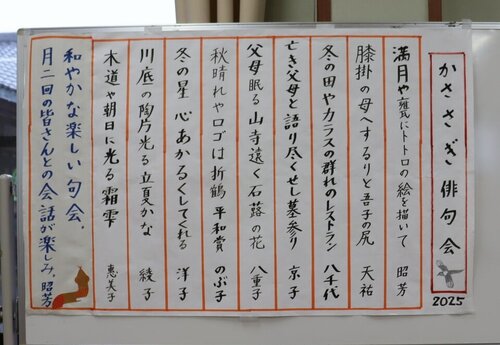 かささぎ俳句会
2025
満月や甕にトトロの絵を描いて 昭芳
膝掛の母へするりと吾子の尻 天祐
冬の田やカラスの群れのレストラン 八千代
亡き父母と語り尽くせし墓参り 京子
父母眠る山寺遠く石蕗の花 八重子
秋晴れやロゴは折鶴平和賞 のぶ子
冬の星 心あかるくしてくれる 洋子
川底の陶片光る立夏かな 綾子
木道や朝日に光る霜雫 恵美子
和やかな楽しい句会.
月二回の皆さんとの会話が楽しみ.昭芳